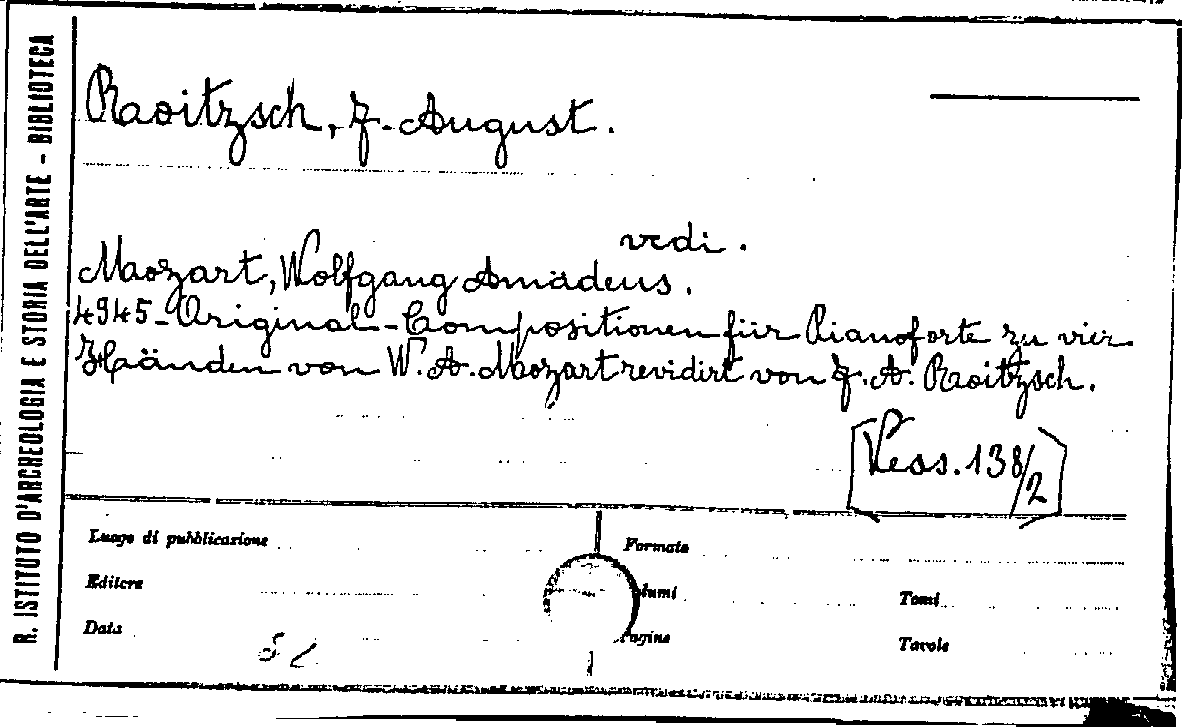 R. ISTITUTO D'ARCHEOLOGIA E STORIA DELL'ARTE - BIBLIOTECA
Raoitzsch, F. August.
vedi.
Mozart, Wolfgang Amadeus.
4945-Original-Compositionen für Pianoforte zu vier
Händen von W. A. Mozart revidirt von F. A. Roitzsch.
[Vess. 138/2]
Luogo di pubblicazione
Formato
Editore
Tomi
Data
Tavole